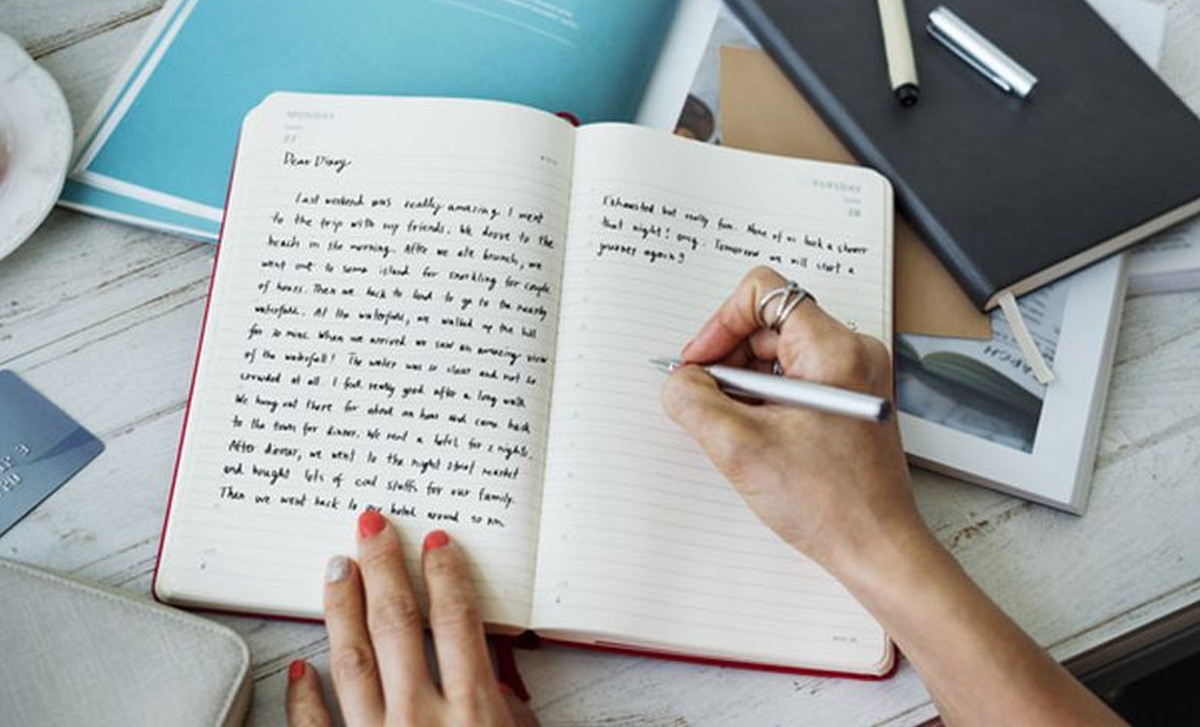 MONDAY
27
Dear Diary
Last weekend was really amazing. I went
to the trip with my friends. We drove to the
beach in the morning. After we ate brunch, we
went out to some island for snorkling for couple
of hours. Then we back to land to go to the nearby
waterfall. At the waterfall, we walked up the hill
for 20 mins. When we arrived we saw an amazing view
of the waterfall! The water was so clear and not so
crowded at all. I feel really good after a long walk
We hung out there for about an hour and came back
to the town for dinner. We rent a hotel for 2 nights.
After dinner, we went to the night street market
and bought lots of cool stuffs for our family.
Then we went back to our hotel around 10 pm.
TUESDAY
28
Exhausted but really fun. None of us took a shower
that night! omg. Tomorrow we will start a
journey again!